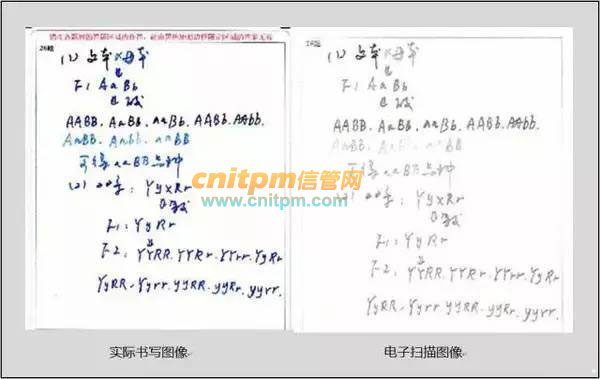 请在各题目的答题区域内作答，超出黑色矩形边框限定区域的答案无效
26题
(1) 父本×母本
F1 AaBb
AABB. AaBB. aaBb. AABb. AAbb.
AaBB. Aabb. aaBB
可得aaBB品种
(2) : Yy×Rr
F1: YyRr
F2: YYRR. YYRr. YYrr. YyRr
YyRR. Yyrr. yyRR. yyRr. yyrr.
26题
(1) 父本×母本
F1 AaBb
AABB. AaBB. aaBb. AABb. AAbb.
AaBB. Aabb. aaBB
可得aaBB品种
(2) : Yy×Rr
F1: YyRr
F2: YYRR. YYRr. YYrr. YyRr
YyRR. Yyrr yyRR. yyRr. yyrr.
cnitpm信管网
www.cnitpm.com
实际书写图像
电子扫描图像